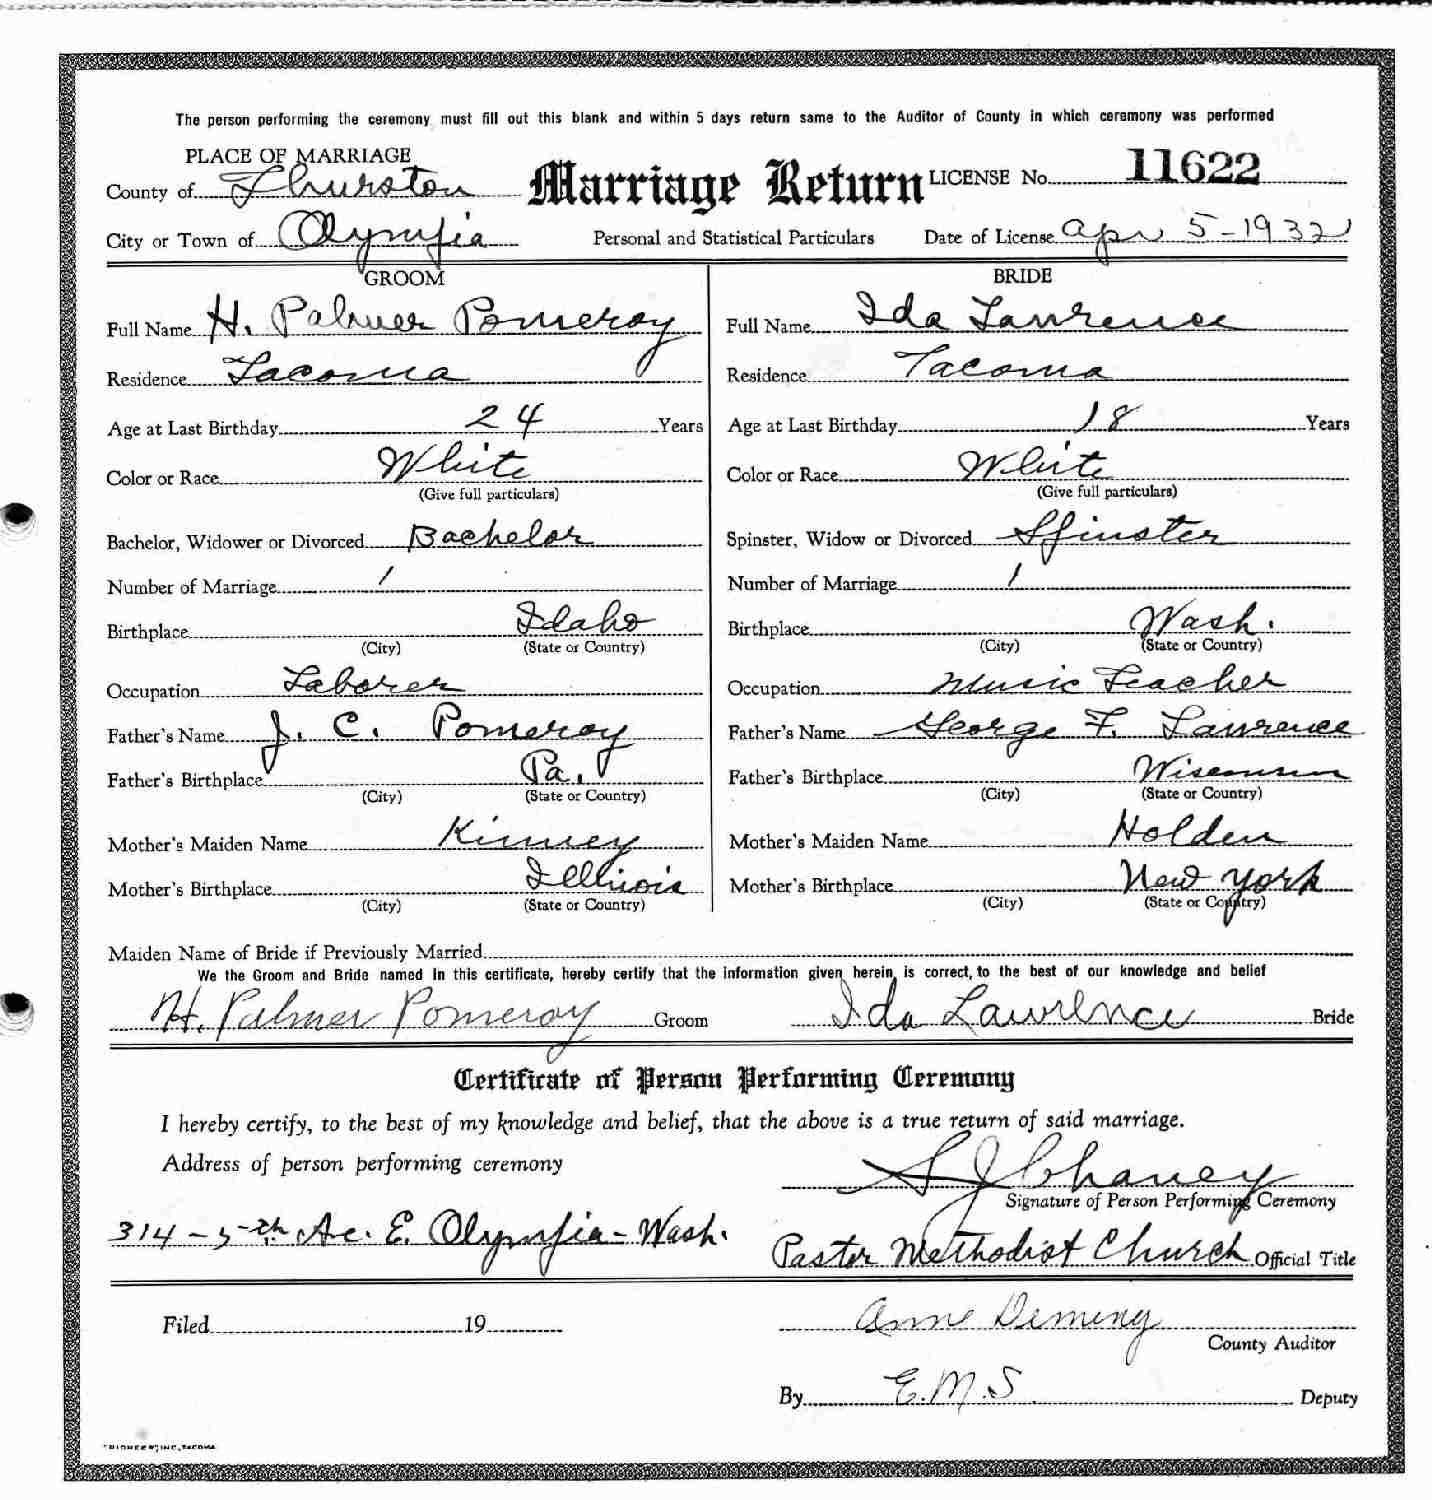 The person performing the ceremony must fill out this blank and within 5 days return same to the Auditor of County in which ceremony was performed
PLACE OF MARRIAGE
County of Thurston
Marriage Return
LICENSE No. 11622
City or Town of Olympia
Personal and Statistical Particulars
Date of License Apr 5-1932
GROOM
Full Name H. Palmer Pomeroy
Residence Tacoma
Age at Last Birthday 24 Years
Color or Race White
(Give full particulars)
Bachelor, Widower or Divorced Bachelor
Number of Marriage 1
Birthplace Idaho
(City) (State or Country)
Occupation Laborer
Father's Name J. C. Pomeroy
Father's Birthplace Pa.
(City) (State or Country)
Mother's Maiden Name Kinney
Mother's Birthplace Illinois
(City) (State or Country)
BRIDE
Full Name Ida Lawrence
Residence Tacoma
Age at Last Birthday 18 Years
Color or Race White
(Give full particulars)
Spinster, Widow or Divorced Spinster
Number of Marriage 1
Birthplace Wash.
(City) (State or Country)
Occupation Music Teacher
Father's Name George F. Lawrence
Father's Birthplace Wisconsin
(City) (State or Country)
Mother's Maiden Name Holden
Mother's Birthplace New York
(City) (State or Country)
Maiden Name of Bride if Previously Married
We the Groom and Bride named in this certificate, hereby certify that the information given herein is correct, to the best of our knowledge and belief
H. Palmer Pomeroy Groom Ida Lawrence Bride
Certificate of Person Performing Ceremony
I hereby certify, to the best of my knowledge and belief, that the above is a true return of said marriage.
Address of person performing ceremony
S J Chaney
Signature of Person Performing Ceremony
314 - 5th Ave. E. Olympia - Wash.
Pastor Methodist Church Official Title
Filed 19
Anne Deming
County Auditor
By E.M.S Deputy
"PIONEER", INC., TACOMA